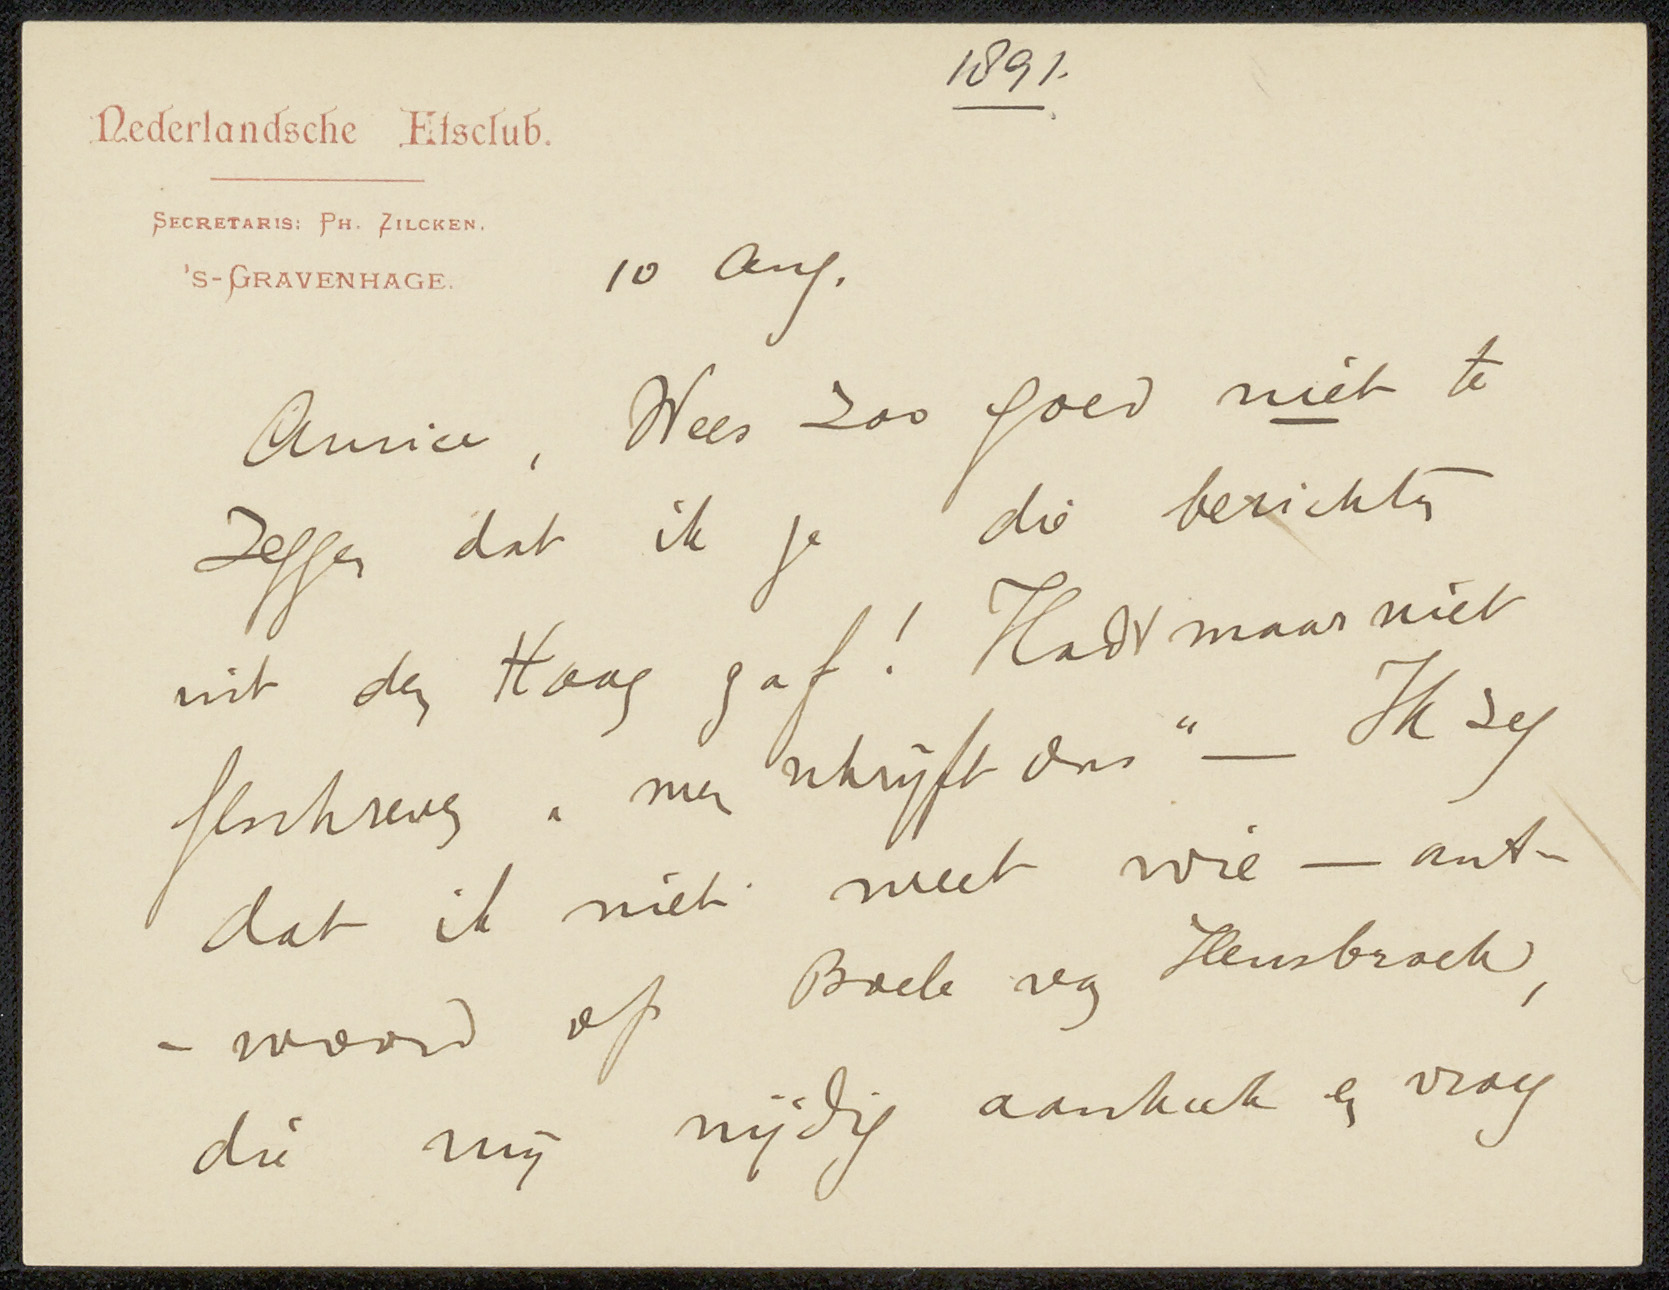 1891.
Nederlandsche Etsclub.
Secretaris: Ph. Zilcken.
's-Gravenhage.
10 Aug.
Amice, Wees zoo goed niet te
zeggen dat ik je die berichten
uit den Haag gaf! Hadt maar niet
geschreven „men schrijft ons“ — Ik zeg
dat ik niet weet wie — ant-
- woord op Boele van Hensbroek,
die mij nijdig aankeek en vroeg